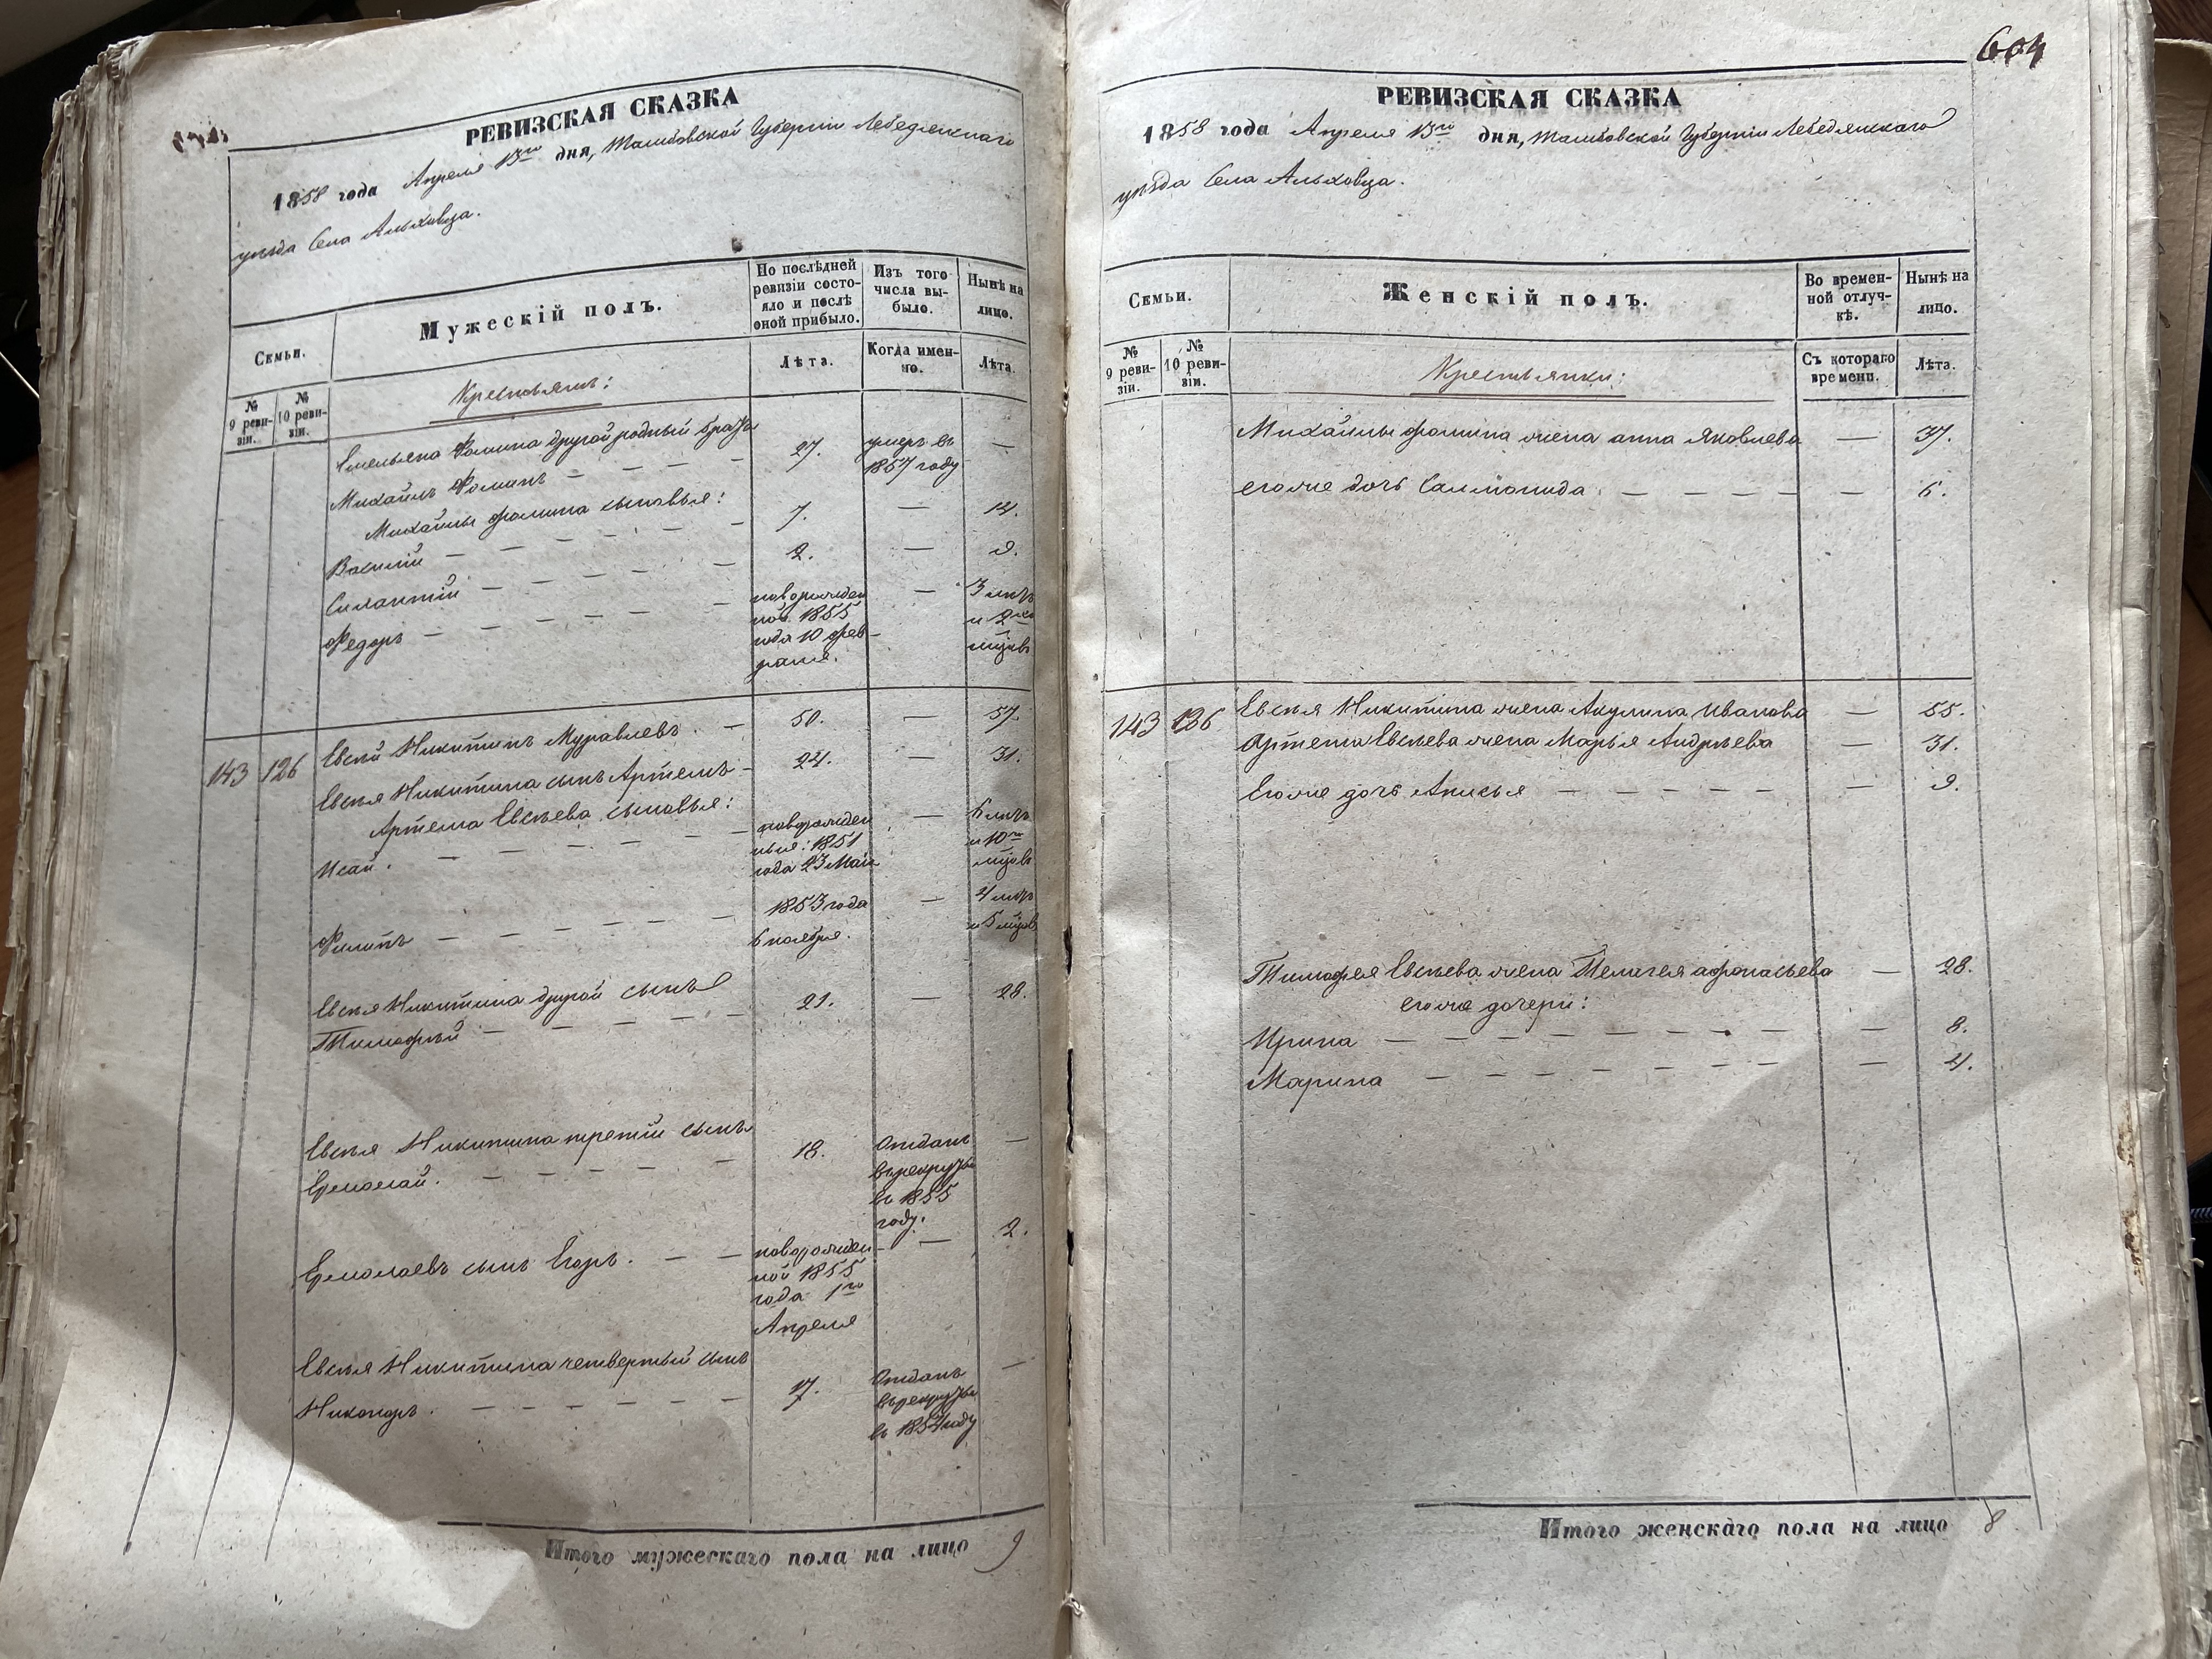 РЕВИЗСКАЯ СКАЗКА
1858 года Апреля 13го дня, Тамбовской Губернiи Лебедянскаго
уѣзда Села Альховца.
Семьи.
Мужескiй полъ.
По послѣдней ревизiи состояло и послѣ оной прибыло.
Изъ того числа выбыло.
Нынѣ на лицо.
№ 9 ревизiи.
№ 10 ревизiи.
Крестьяне:
Лѣта.
Когда именно.
Лѣта.
Емельяна Фомина другой родный братъ
Михайлъ Фоминъ — 27. умеръ въ 1857 году —
Михайлы Фомина сыновья:
Василiй — 7. — 14.
Силантiй — 2. — 9.
Федоръ — новорожденной 1855 года 10 февраля. — 3 лѣтъ и 2хъ мцовъ
143 126 Евсѣй Никитинъ Муравлевъ. — 50. — 57.
Евсѣя Никитина сынъ Артемъ — 24. — 31.
Артема Евсѣева сыновья:
Исай. — новорожденныя: 1851 года 23 Мая — 6 лѣтъ и 10ти мцовъ
Филипъ — 1853 года 6 ноября. — 4 лѣтъ и 5 мцовъ
Евсѣя Никитина другой сынъ
Тимофѣй — 21. — 28.
Евсѣя Никитина третiй сынъ
Ермолай. — 18. Отданъ въ рекруты въ 1855 году. —
Ермолаевъ сынъ Егоръ. — новорожденной 1855 года 1го Апреля — 2.
Евсѣя Никитина четвертый сынъ
Никоноръ. — 17. Отданъ въ рекруты въ 1854 году —
Итого мужескаго пола на лицо 9
604
РЕВИЗСКАЯ СКАЗКА
1858 года Апреля 13го дня, Тамбовской Губернiи Лебедянскаго
уѣзда Села Альховца.
Семьи.
Женскiй полъ.
Во временной отлучкѣ.
Нынѣ на лицо.
№ 9 ревизiи.
№ 10 ревизiи.
Крестьянки:
Съ котораго времени.
Лѣта.
Михайлы Фомина жена анна Яковлева — 37.
его же дочь Саломонида — 6.
143 126 Евсѣя Никитина жена Акулина Иванова — 55.
Артема Евсѣева жена Марья Андрѣева — 31.
Его же дочь Анисья — 9.
Тимофея Евсѣева жена Пелагея афонасьева — 28.
его же дочери:
Ирина — 8.
Марина — 4.
Итого женскаго пола на лицо 8